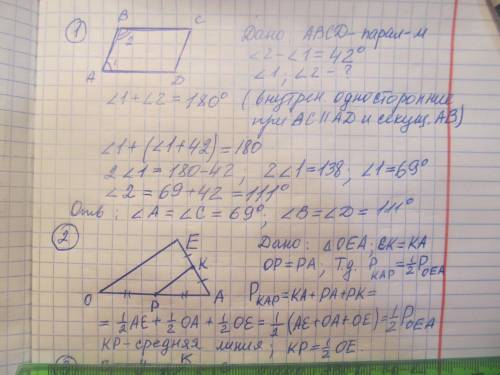 ①
B
C
2
1
A
D
Дано ABCD-парал-м
∠2-∠1=42°
∠1, ∠2-?
∠1+∠2=180° (внутрен. односторонние
при AC∥AD и секущ. AB)
∠1+(∠1+42)=180
2∠1=180-42, 2∠1=138, ∠1=69°
∠2=69+42=111°
Отв: ∠A=∠C=69°; ∠B=∠D=111°
②
E
K
O
P
A
Дано: △OEA; EK=KA
OP=PA; Тд. P KAP=½P OEA
P KAP=KA+PA+PK=
=½AE+½OA+½OE=½(AE+OA+OE)=½P OEA
KP-средняя линия; KP=½OE.
K